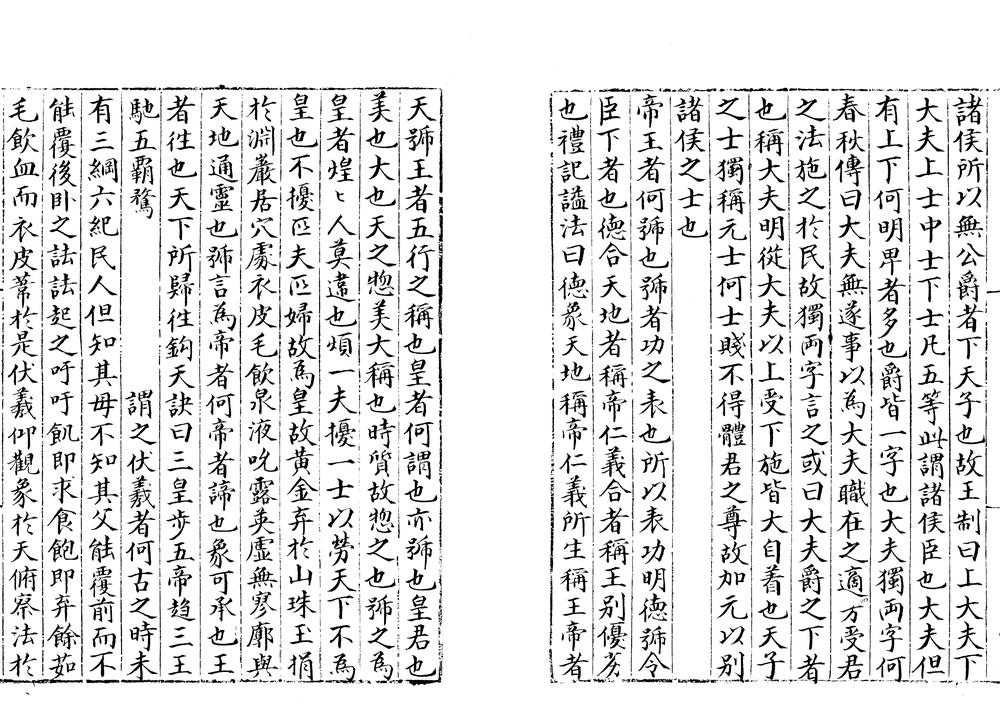 諸侯所以無公爵者下天子也故王制曰上大夫下
大夫上士中士下士凡五等此謂諸侯臣也大夫但
有上下何明卑者多也爵皆一字也大夫獨兩字何
春秋傳曰大夫無遂事以為大夫職在之適方受君
之法施之於民故獨兩字言之或曰大夫爵之下者
也稱大夫明從大夫以上受下施皆大自著也天子
之士獨稱元士何士賤不得體君之尊故加元以別
諸侯之士也
帝王者何號也號者功之表也所以表功明德號令
臣下者也德合天地者稱帝仁義合者稱王別優劣
也禮記謚法曰德象天地稱帝仁義所生稱王帝者
天號王者五行之稱也皇者何謂也亦號也皇君也
美也大也天之惣美大稱也時質故惣之也號之為
皇者煌〻人莫違也煩一夫擾一士以勞天下不為
皇也不擾匹夫匹婦故為皇故黃金弃於山珠玉捐
於淵巖居穴處衣皮毛飲泉液吮露英虛無寥廓與
天地通靈也號言為帝者何帝者諦也象可承也王
者往也天下所歸往鈎天訣曰三皇步五帝趍三王
馳五霸騖　　　　　　謂之伏羲者何古之時未
有三綱六紀民人但知其母不知其父能覆前而不
能覆後卧之詓詓起之吁吁飢即求食飽即弃餘茹
毛飲血而衣皮葦於是伏羲仰觀象於天俯察法於